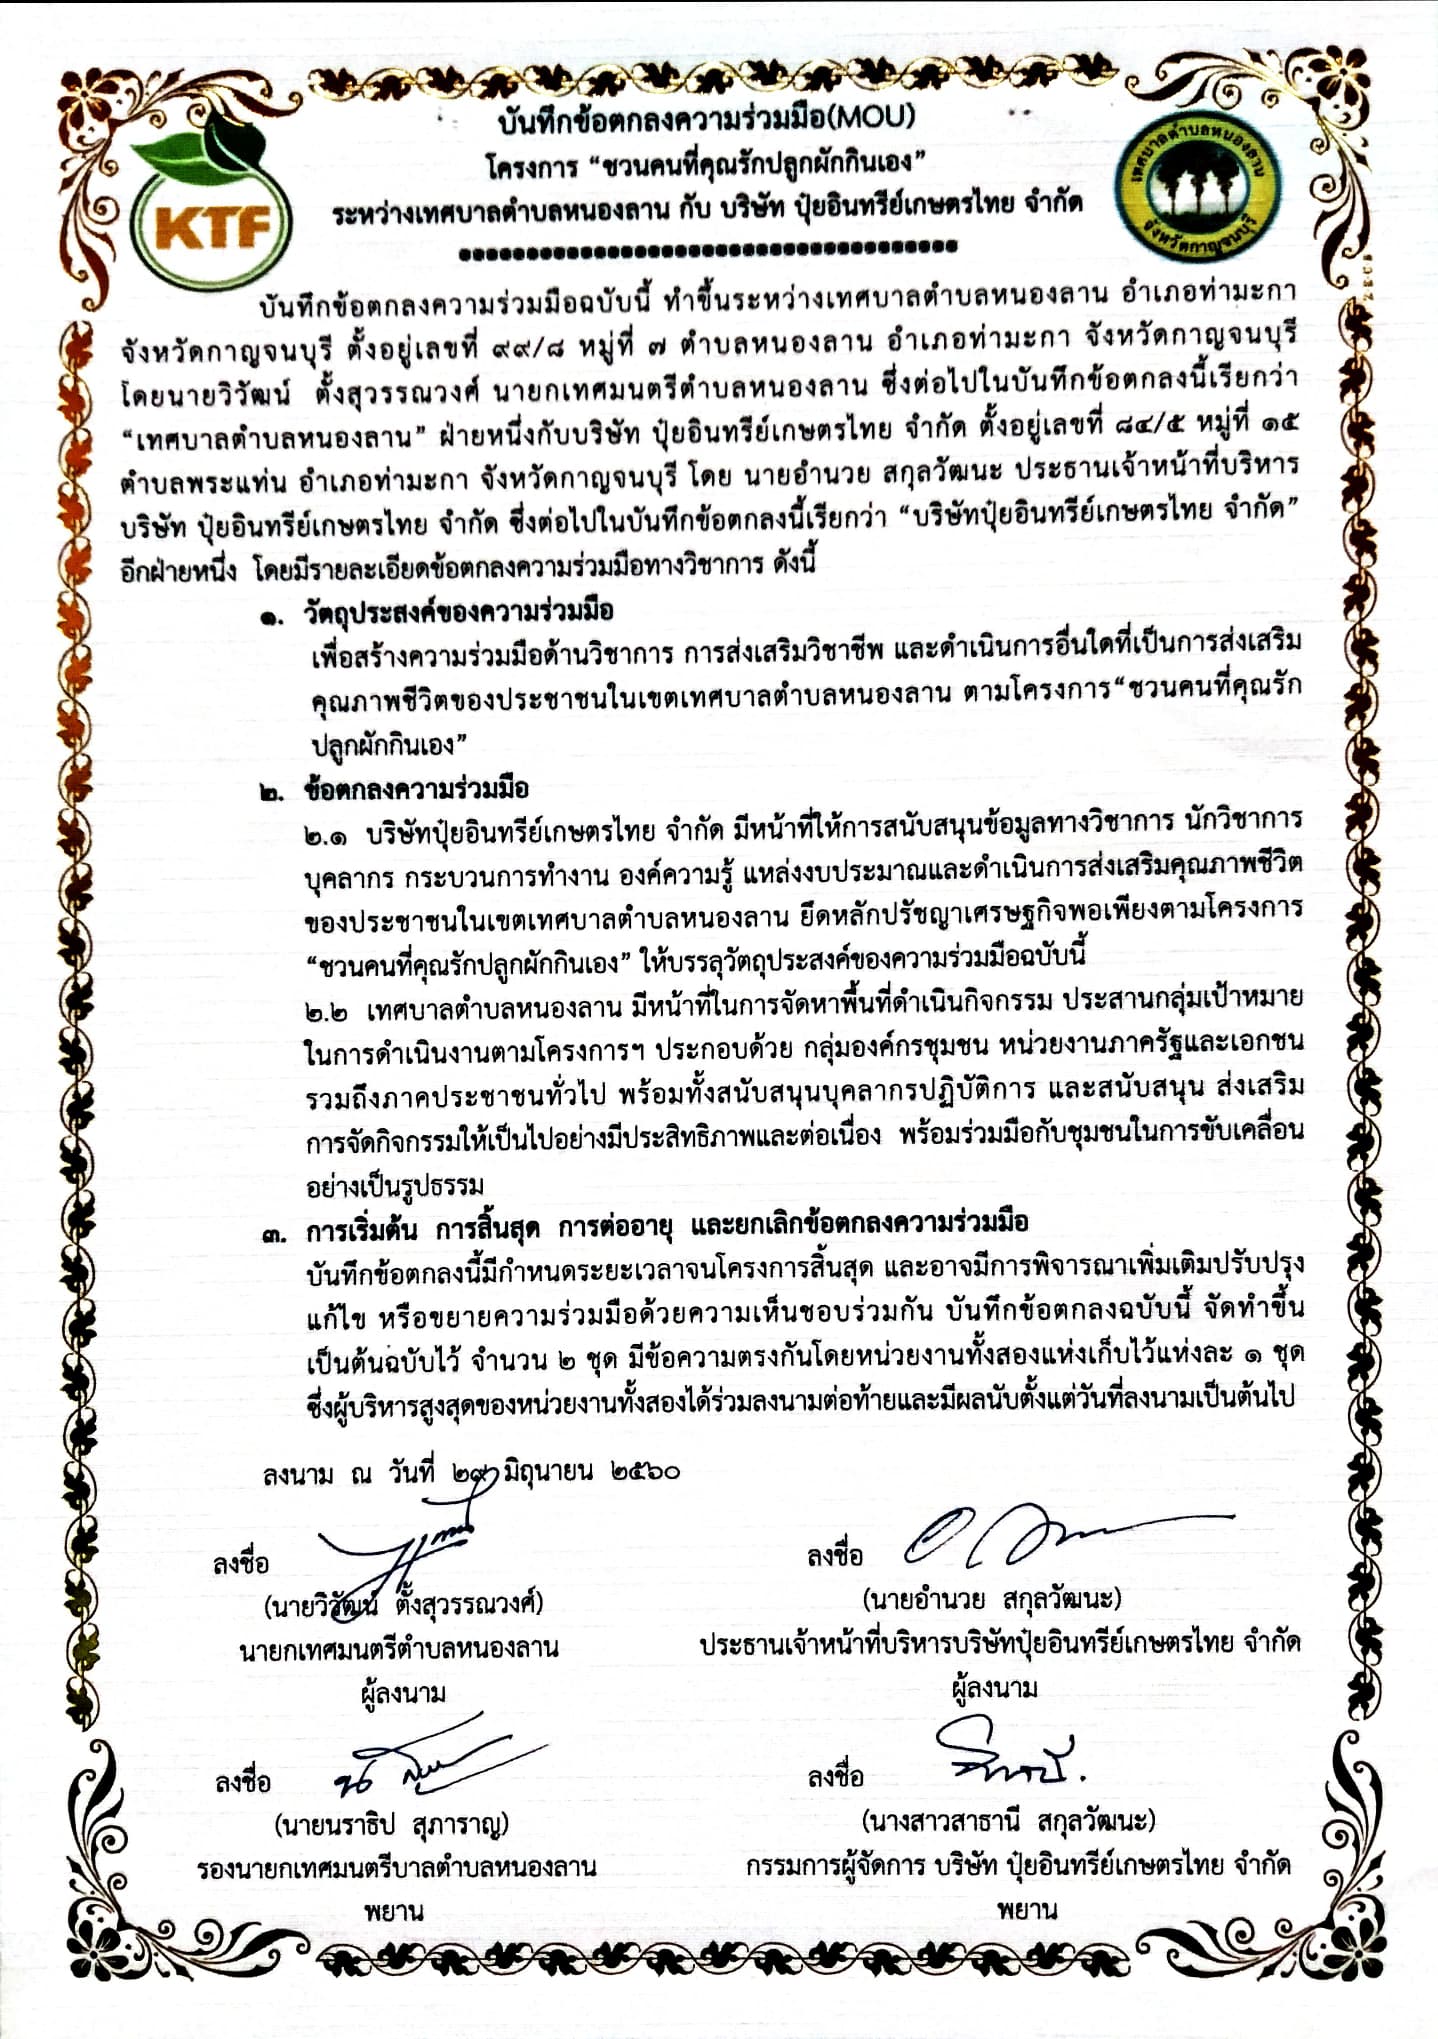 บันทึกข้อตกลงความร่วมมือ(MOU)
โครงการ “ชวนคนที่คุณรักปลูกผักกินเอง”
ระหว่างเทศบาลตำบลหนองลาน กับ บริษัท ปุ๋ยอินทรีย์เกษตรไทย จำกัด
KTF
เทศบาลตำบลหนองลาน
จังหวัดกาญจนบุรี
บันทึกข้อตกลงความร่วมมือฉบับนี้ ทำขึ้นระหว่างเทศบาลตำบลหนองลาน อำเภอท่ามะกา
จังหวัดกาญจนบุรี ตั้งอยู่เลขที่ ๙๙/๘ หมู่ที่ ๗ ตำบลหนองลาน อำเภอท่ามะกา จังหวัดกาญจนบุรี
โดยนายวิวัฒน์ ตั้งสุวรรณวงศ์ นายกเทศมนตรีตำบลหนองลาน ซึ่งต่อไปในบันทึกข้อตกลงนี้เรียกว่า
“เทศบาลตำบลหนองลาน” ฝ่ายหนึ่งกับบริษัท ปุ๋ยอินทรีย์เกษตรไทย จำกัด ตั้งอยู่เลขที่ ๘๔/๕ หมู่ที่ ๑๕
ตำบลพระแท่น อำเภอท่ามะกา จังหวัดกาญจนบุรี โดย นายอำนวย สกุลวัฒนะ ประธานเจ้าหน้าที่บริหาร
บริษัท ปุ๋ยอินทรีย์เกษตรไทย จำกัด ซึ่งต่อไปในบันทึกข้อตกลงนี้เรียกว่า “บริษัทปุ๋ยอินทรีย์เกษตรไทย จำกัด”
อีกฝ่ายหนึ่ง โดยมีรายละเอียดข้อตกลงความร่วมมือทางวิชาการ ดังนี้
๑. วัตถุประสงค์ของความร่วมมือ
เพื่อสร้างความร่วมมือด้านวิชาการ การส่งเสริมวิชาชีพ และดำเนินการอื่นใดที่เป็นการส่งเสริม
คุณภาพชีวิตของประชาชนในเขตเทศบาลตำบลหนองลาน ตามโครงการ“ชวนคนที่คุณรัก
ปลูกผักกินเอง”
๒. ข้อตกลงความร่วมมือ
๒.๑ บริษัทปุ๋ยอินทรีย์เกษตรไทย จำกัด มีหน้าที่ให้การสนับสนุนข้อมูลทางวิชาการ นักวิชาการ
บุคลากร กระบวนการทำงาน องค์ความรู้ แหล่งงบประมาณและดำเนินการส่งเสริมคุณภาพชีวิต
ของประชาชนในเขตเทศบาลตำบลหนองลาน ยึดหลักปรัชญาเศรษฐกิจพอเพียงตามโครงการ
“ชวนคนที่คุณรักปลูกผักกินเอง” ให้บรรลุวัตถุประสงค์ของความร่วมมือฉบับนี้
๒.๒ เทศบาลตำบลหนองลาน มีหน้าที่ในการจัดหาพื้นที่ดำเนินกิจกรรม ประสานกลุ่มเป้าหมาย
ในการดำเนินงานตามโครงการฯ ประกอบด้วย กลุ่มองค์กรชุมชน หน่วยงานภาครัฐและเอกชน
รวมถึงภาคประชาชนทั่วไป พร้อมทั้งสนับสนุนบุคลากรปฏิบัติการ และสนับสนุน ส่งเสริม
การจัดกิจกรรมให้เป็นไปอย่างมีประสิทธิภาพและต่อเนื่อง พร้อมร่วมมือกับชุมชนในการขับเคลื่อน
อย่างเป็นรูปธรรม
๓. การเริ่มต้น การสิ้นสุด การต่ออายุ และยกเลิกข้อตกลงความร่วมมือ
บันทึกข้อตกลงนี้มีกำหนดระยะเวลาจนโครงการสิ้นสุด และอาจมีการพิจารณาเพิ่มเติมปรับปรุง
แก้ไข หรือขยายความร่วมมือด้วยความเห็นชอบร่วมกัน บันทึกข้อตกลงฉบับนี้ จัดทำขึ้น
เป็นต้นฉบับไว้ จำนวน ๒ ชุด มีข้อความตรงกันโดยหน่วยงานทั้งสองแห่งเก็บไว้แห่งละ ๑ ชุด
ซึ่งผู้บริหารสูงสุดของหน่วยงานทั้งสองได้ร่วมลงนามต่อท้ายและมีผลนับตั้งแต่วันที่ลงนามเป็นต้นไป
ลงนาม ณ วันที่ ๒๙ มิถุนายน ๒๕๖๐
ลงชื่อ
(นายวิวัฒน์ ตั้งสุวรรณวงศ์)
นายกเทศมนตรีตำบลหนองลาน
ผู้ลงนาม
ลงชื่อ
(นายอำนวย สกุลวัฒนะ)
ประธานเจ้าหน้าที่บริหารบริษัทปุ๋ยอินทรีย์เกษตรไทย จำกัด
ผู้ลงนาม
ลงชื่อ
(นายนราธิป สุภาราญ)
รองนายกเทศมนตรีบาลตำบลหนองลาน
พยาน
ลงชื่อ
(นางสาวสาธานี สกุลวัฒนะ)
กรรมการผู้จัดการ บริษัท ปุ๋ยอินทรีย์เกษตรไทย จำกัด
พยาน